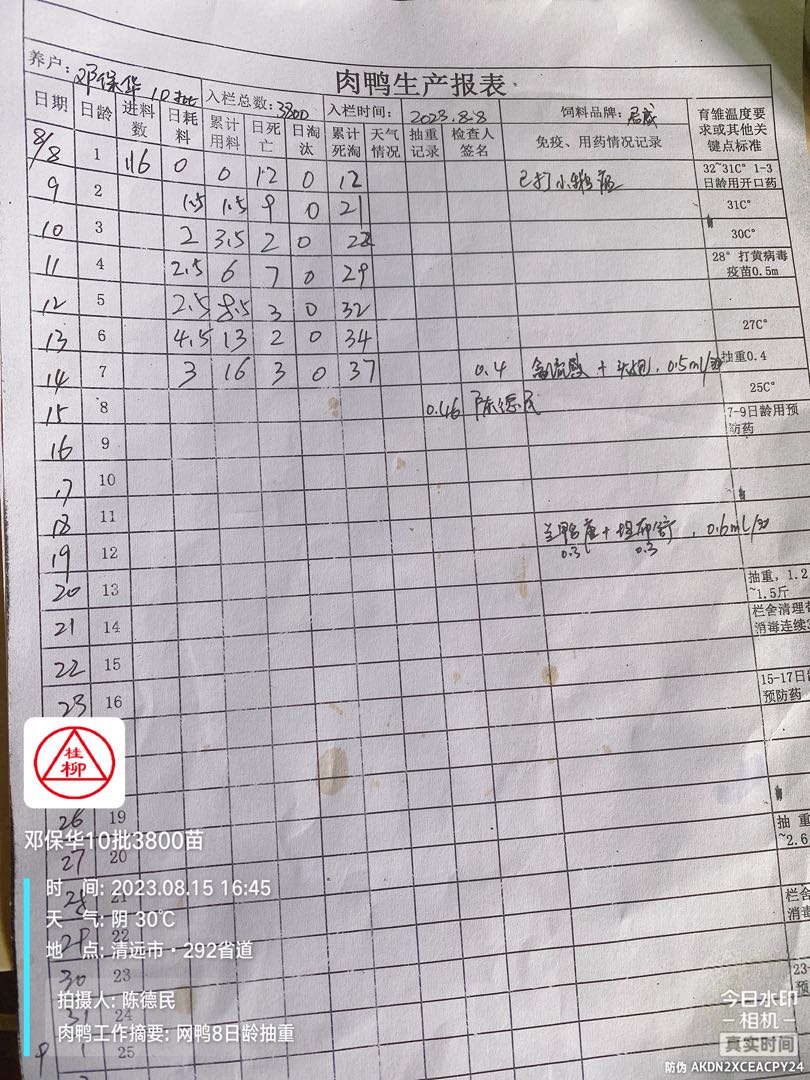 肉鸭生产报表
养户: 邓保华 10批 入栏总数: 3800 入栏时间: 2023.8.8 饲料品牌:
日期 日龄 进料数 日耗料 累计用料 日死亡 日淘汰 累计死淘 天气情况 抽重记录 检查人签名 免疫、用药情况记录 育雏温度要求或其他关键点标准
8/8 1 116 0 0 12 0 12 已打小 32~31C° 1-3日龄用开口药
9 2 1.5 1.5 9 0 21 31C°
10 3 2 3.5 2 0 22 30C°
11 4 2.5 6 7 0 29 28° 打黄病毒疫苗0.5m
12 5 2.5 8.5 3 0 32
13 6 4.5 13 2 0 34 27C°
14 7 3 16 3 0 37 0.4 禽流感 + 0.5ml/ 抽重0.4
25C°
15 8 0.46 陈德民 7-9日龄用预防药
16 9
17 10
18 11
19 12 + 0.6ml/
0.3 0.3
20 13 抽重, 1.2~1.5斤
21 14 栏舍清理 消毒连续
22 15
23 16 15-17日 预防药
26 19
27 20 抽 重 ~2.6
28 21
29 22 栏舍 消
30 23 23- 预
31 24
9 1 25
桂柳
邓保华10批3800苗
时 间: 2023.08.15 16:45
天 气: 阴 30℃
地 点: 清远市·292省道
拍摄人: 陈德民
肉鸭工作摘要: 网鸭8日龄抽重
今日水印
相机
真实时间
防伪 AKDN2XCEACPY24